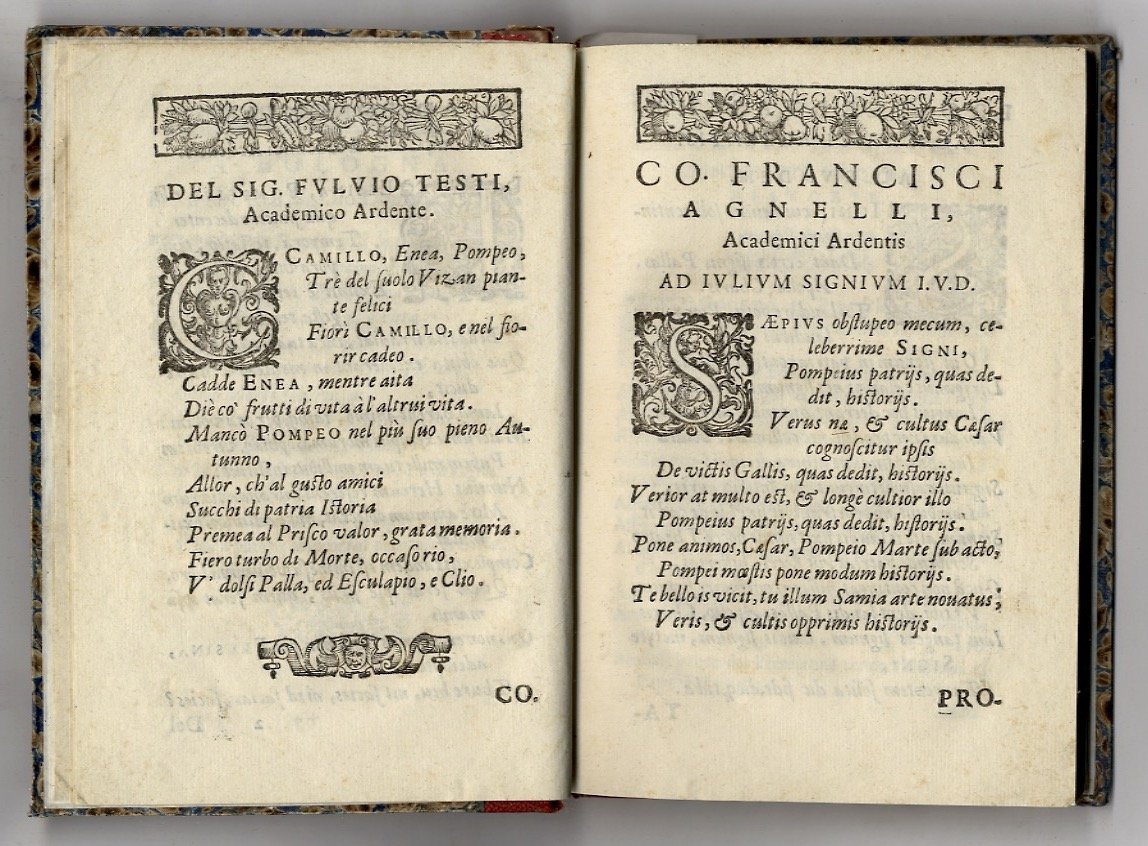 DEL SIG. FVLVIO TESTI,
Academico Ardente.
CCAMILLO, Enea, Pompeo,
Trè del ſuolo Vizan pian-
te felici
Fiorì CAMILLO, e nel fio-
rir cadeo.
Cadde ENEA, mentre aita
Diè co' frutti di vita à l'altrui vita.
Mancò POMPEO nel più ſuo pieno Au-
tunno,
Allor, ch'al guſto amici
Succhi di patria Iſtoria
Premea al Priſco valor, grata memoria.
Fiero turbo di Morte, occaſo rio,
V' dolſi Palla, ed Eſculapio, e Clio.
CO.
CO. FRANCISCI
AGNELLI,
Academici Ardentis
AD IVLIVM SIGNIVM I.V.D.
SÆPIVS obſtupeo mecum, ce-
leberrime SIGNI,
Pompeius patrijs, quas de-
dit, hiſtorijs.
Verus næ, & cultus Cæſar
cognoſcitur ipſis
De victis Gallis, quas dedit, hiſtorijs.
Verior at multo eſt, & longè cultior illo
Pompeius patrijs, quas dedit, hiſtorijs.
Pone animos, Cæſar, Pompeio Marte ſub acto,
Pompei mœſtis pone modum hiſtorijs.
Te bello is vicit, tu illum Samia arte nouatus;
Veris, & cultis opprimis hiſtorijs.
PRO-